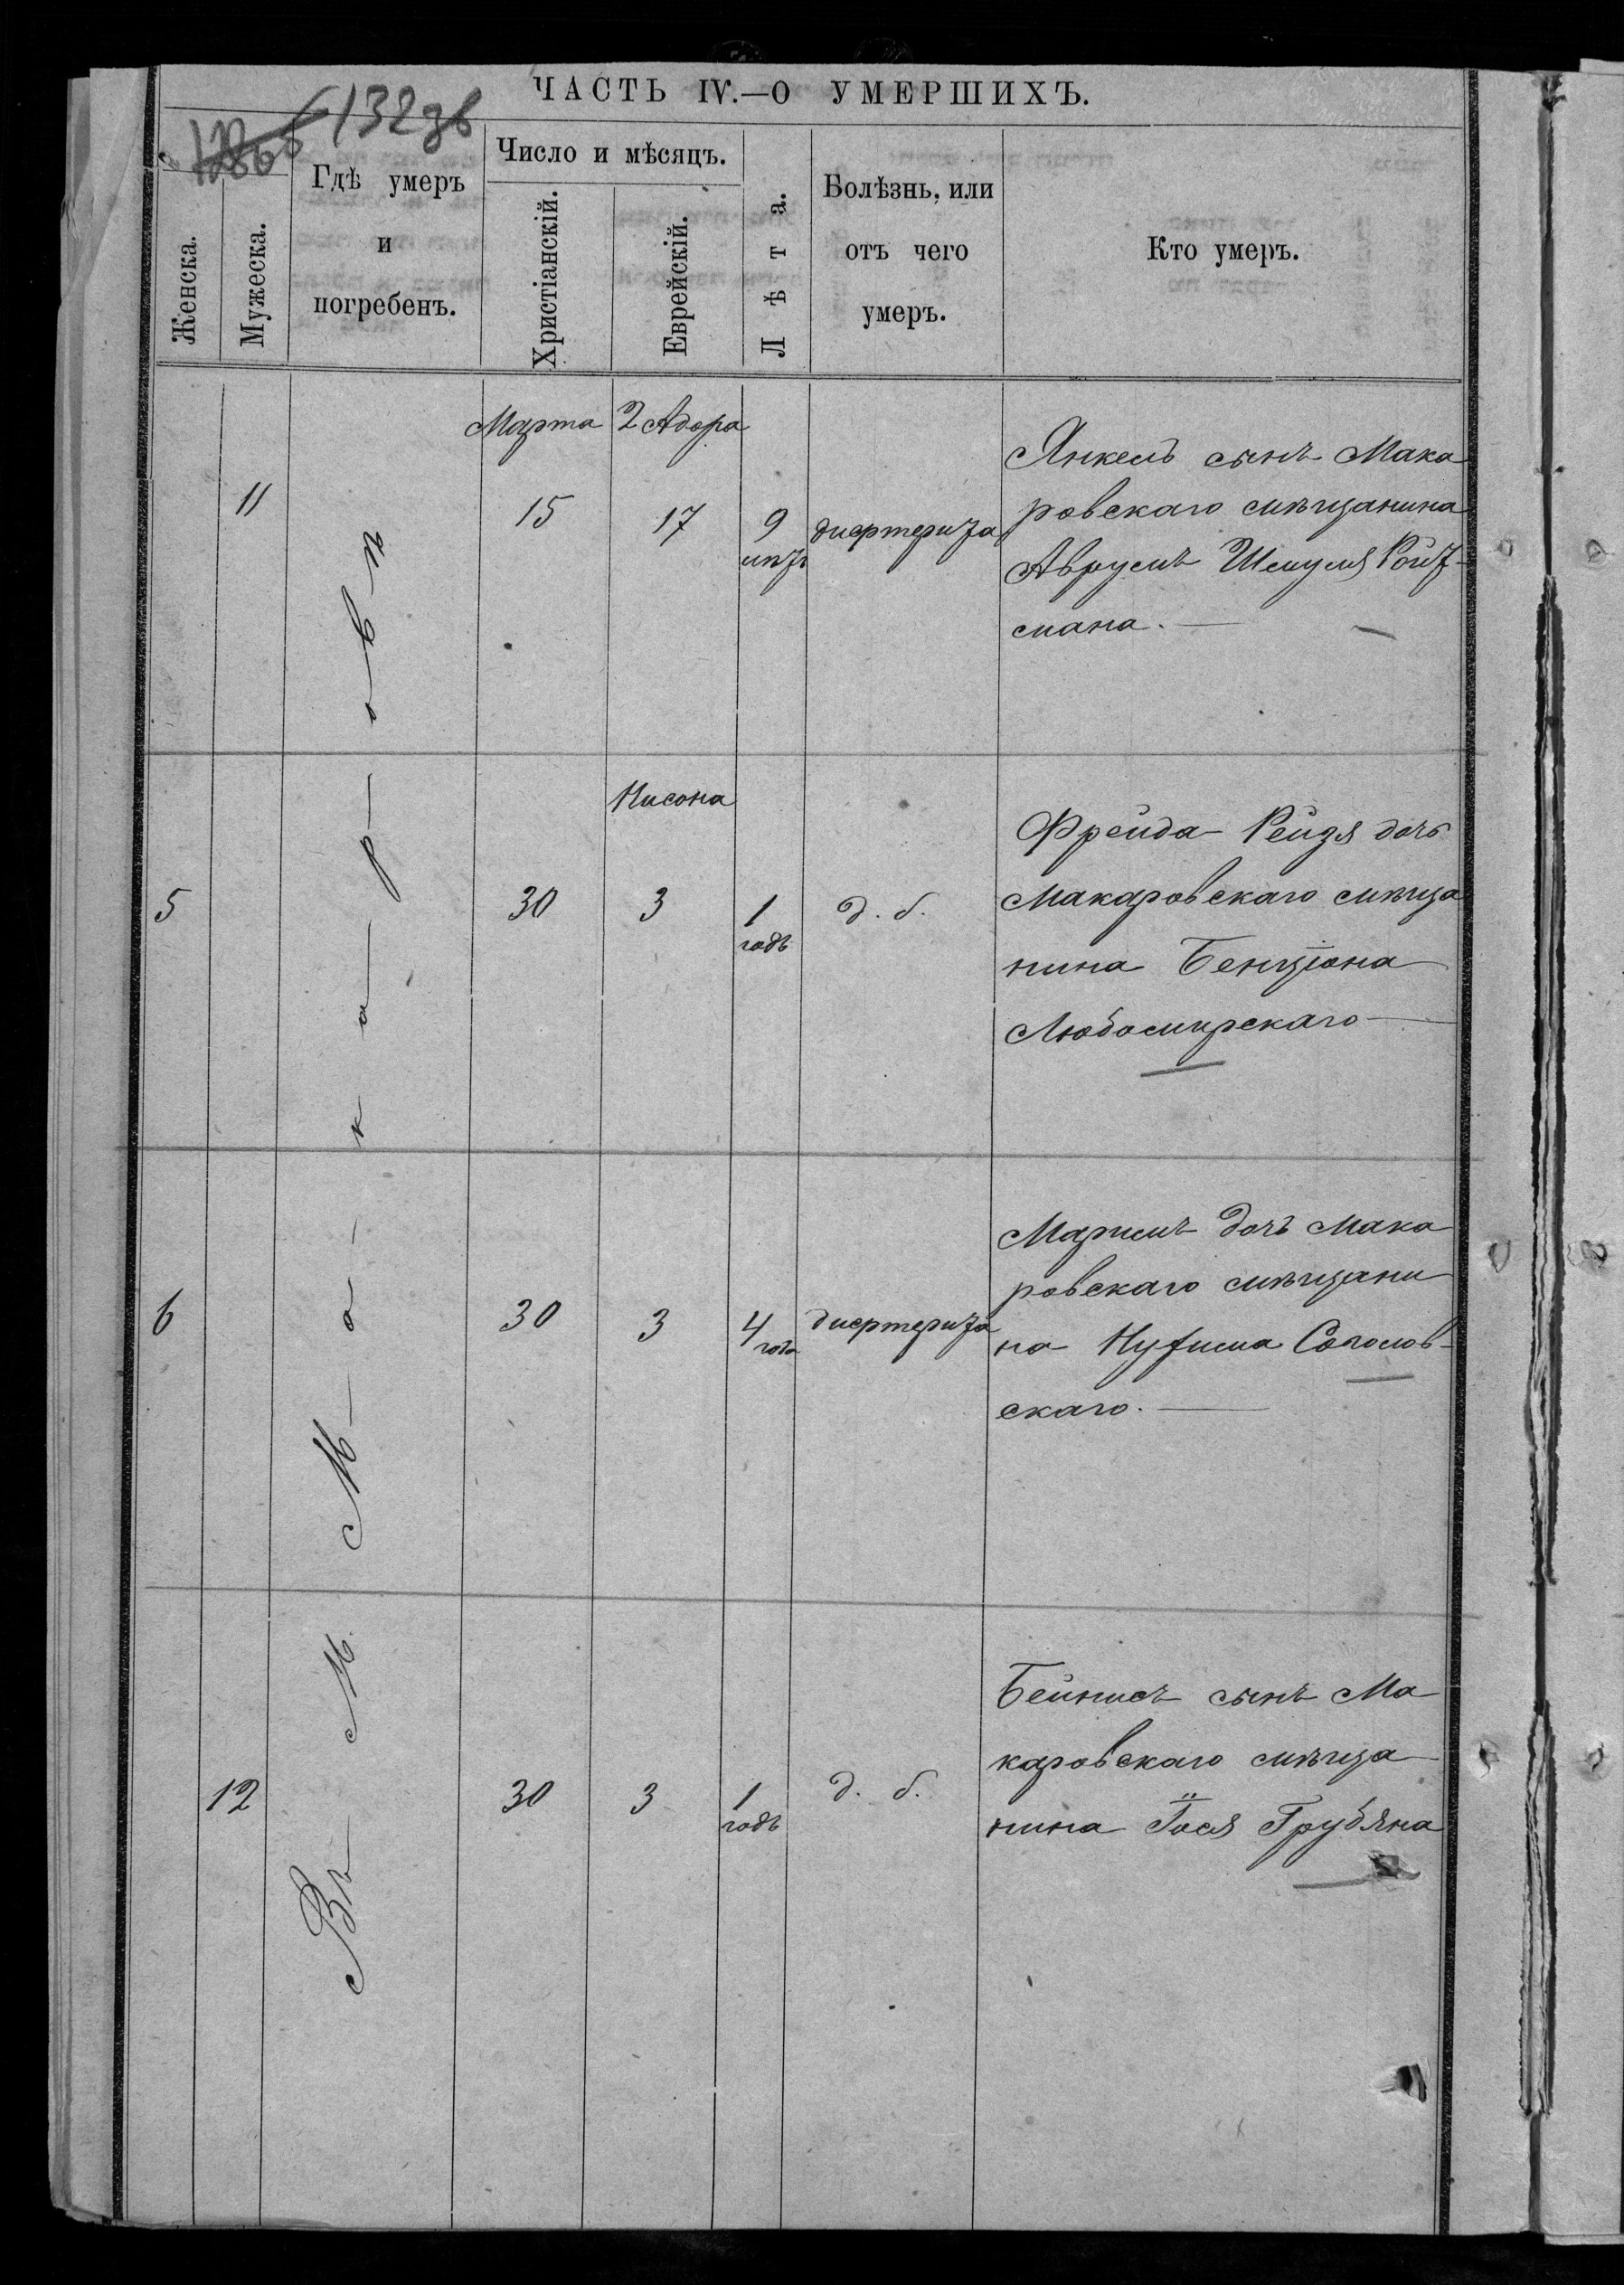 ЧАСТЬ IV.—О УМЕРШИХЪ.
132зв
Женска.
Мужеска.
Гдѣ умеръ
и
погребенъ.
Число и мѣсяцъ.
Христіанскій.
Еврейскій.
Лѣта.
Болѣзнь, или
отъ чего
умеръ.
Кто умеръ.
Въ М. М-а-к-а-р-о-в-ѣ
Марта 2 Адора
11 15 17 9 лѣтъ дифтерита
Янкель сынъ Мака
ровскаго мѣщанина
Аврумъ Шмуля Ройт-
мана.—
Нисона
5 30 3 1 годъ д. б.
Фрейда Рейзя дочь
Макаровскаго мѣща
нина Бенціона
Любомирскаго—
6 30 3 4 года дифтерита
Маримъ дочь Мака
ровскаго мѣщани
на Нутима Соколов-
скаго.—
12 30 3 1 годъ д. б.
Бейнисъ сынъ Ма
каровскаго мѣща
нина Іося Грубяна